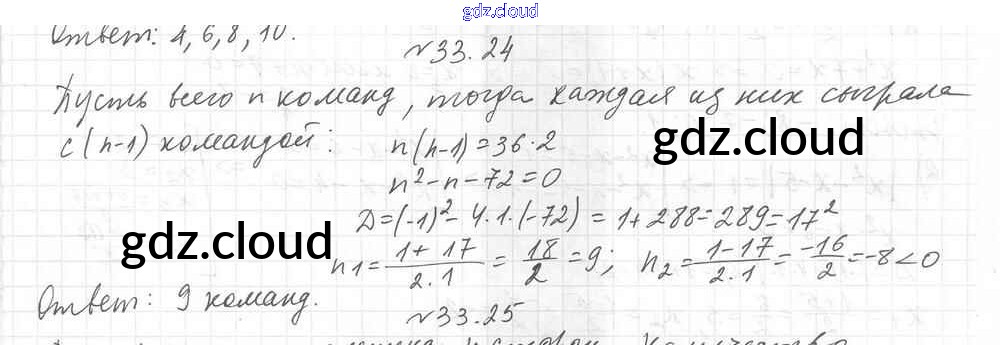 gdz.cloud
Ответ: 4, 6, 8, 10.
№33.24
Пусть всего n команд, тогда каждая из них сыграла
с (n-1) командой: n(n-1)=36·2
gdz.cloud
n²-n-72=0
D=(-1)²-4·1·(-72)=1+288=289=17²
gdz.cloud
n₁=(1+17)/(2·1)=18/2=9; n₂=(1-17)/(2·1)=-16/2=-8<0
Ответ: 9 команд.
№33.25